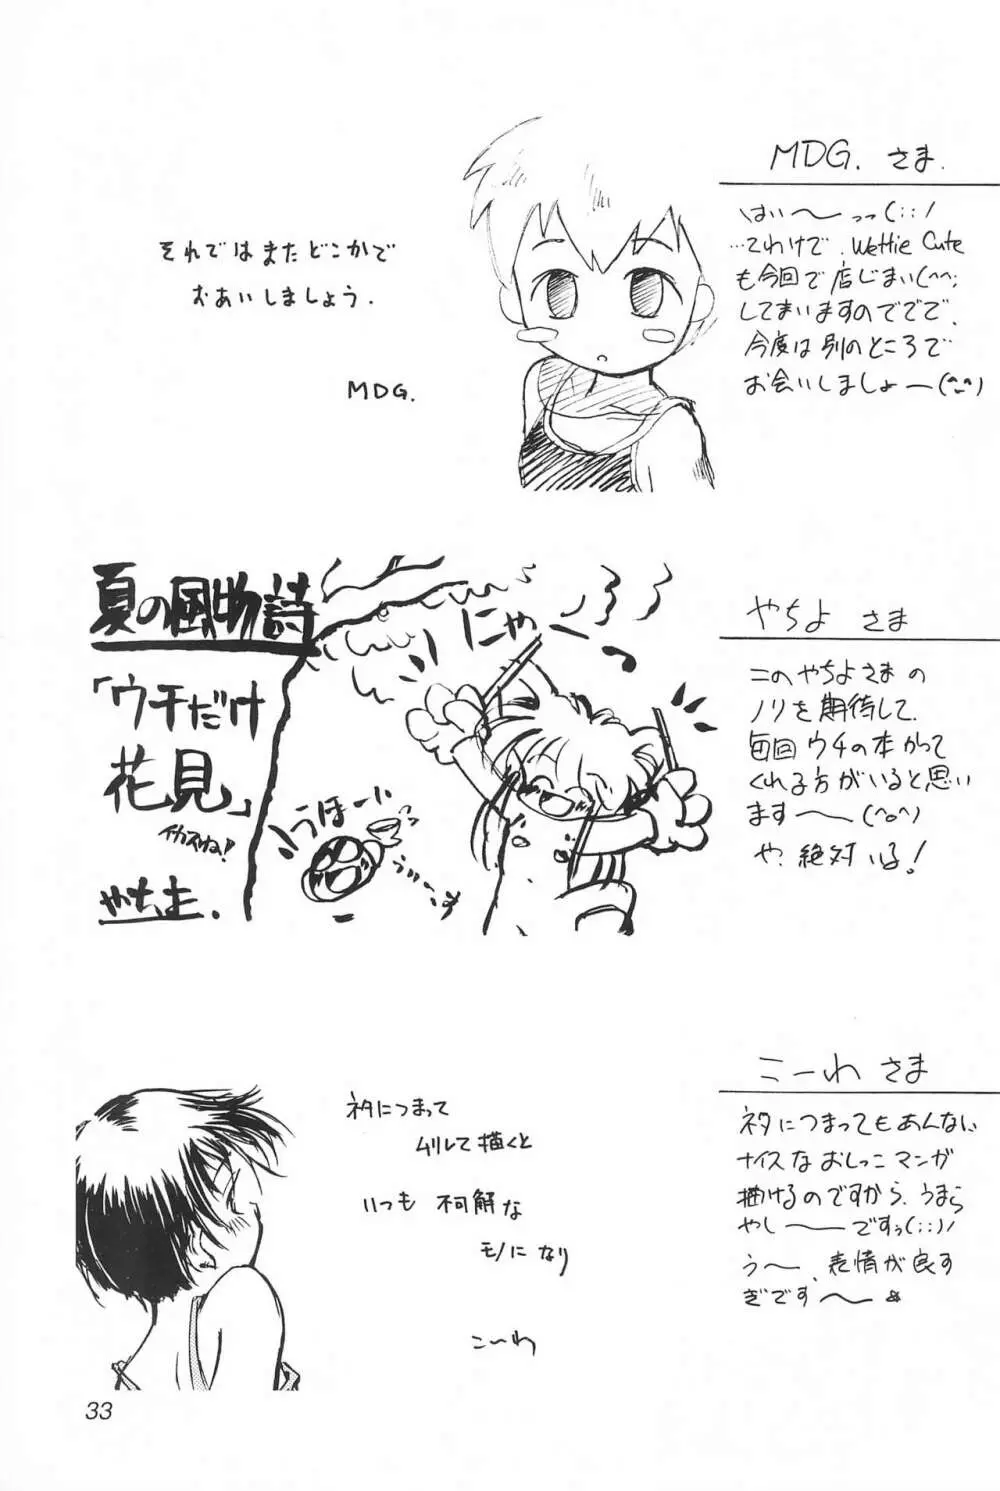 MDG. さま.
はぃ〜っっ(；；)ノ
…てわけで、Wettie Cute
も今回で店じまい(^^;
してまいますのででで、
今度は別のところで
お会いしましょー(^_^)
それではまたどこかで
おあいしましょう.
MDG.
やちよ さま
このやちよさまの
ノリを期待して、
毎回ウチの本かって
くれる方がいると思い
ます〜(^o^)
や、絶対いる!
夏の風物詩
「ウチだけ
花見」
イカスね!
やちよ.
にゃ〜
うほーい
こーわ さま
ネタにつまってもあんない
ナイスなおしっこマンガ
描けるのですから、うまら
やし〜ですぅ(；；)ノ
う〜、表情が良す
ぎです〜
ネタにつまって
ムリして描くと
いつも 不可解な
モノに なり
こーわ
33